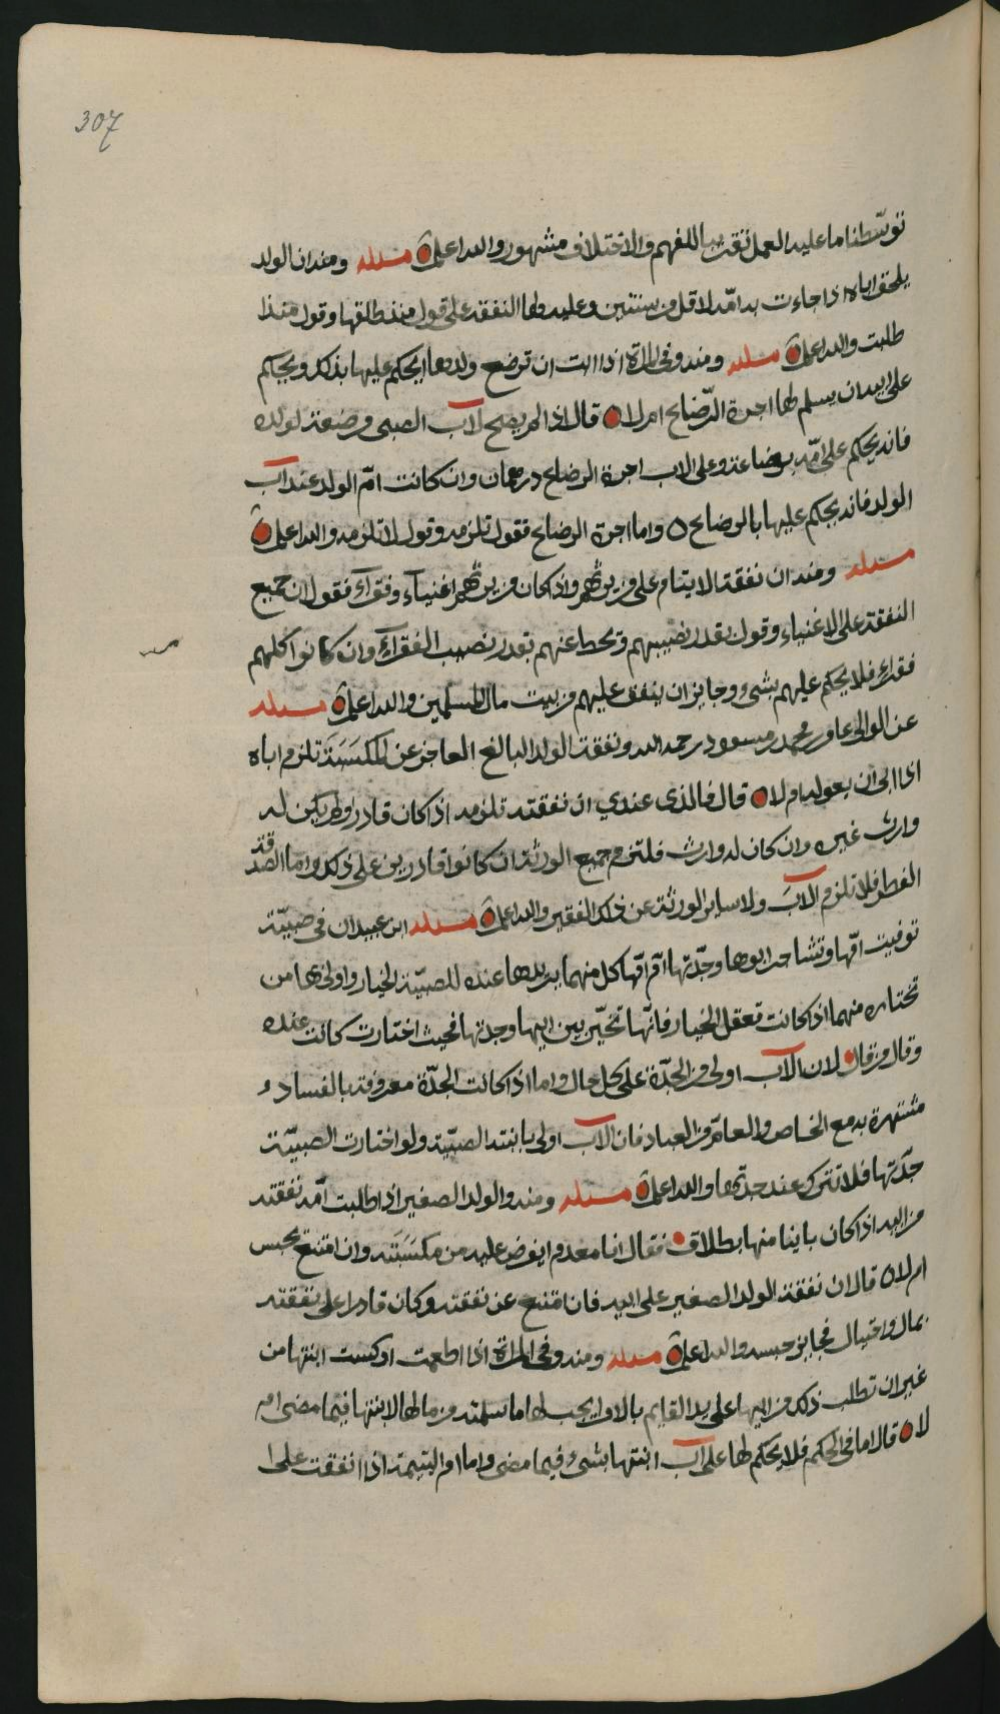 307
توسّطنا ما عليه العمل تقريبا للفهم والاختلاف مشهور والله اعلم مسئله ومنه ان الولد
يلحق اباه اذا جاءت به امّه لاقل من سنتين وعليه ولها النفقة على قول منذ طلقها وقول منذ
طلبت والله اعلم مسئله ومنه وفي المراة اذا ابت ان ترضع ولدها ايحكم عليها بذلك ويحكم
على ابيه ان يسلم لها اجرة الرّضاع ام لا قال اذا لم يصح لاب الصبي مرضعة لولده
فانه يحكم على امّه برضاعه وعلى الاب اجرة الرضاع درهمان وان كانت امّ الولد عند اب
الولد فانه يحكم عليها بالرضاع ٥ واما اجرة الرضاع فقول تلزمه وقول لا تلزمه والله اعلم
مسئله ومنه ان نفقة الايتام على من يرثهم واذا كان من يرثهم اغنيآء وفقرآء فقول ان جميع
النفقة على الاغنياء وقول بقدر نصيبهم ويحط عنهم بقدر نصيب الفقرآء وان كانوا كلهم
فقراء فلا يحكم عليهم بشىء وجايز ان ينفق عليهم من بيت مال المسلمين والله اعلم مسئله
عن الوالي عامر بن محمد بن مسعود رحمه الله ونفقة الولد البالغ العاجز عن المكسَبَة تلزم اباه
اذا ابى ان يعوله ام لا قال فالذي عندي ان نفقته تلزمه اذا كان قادرا ولم يكن له
وارث غيره وان كان له وارث فلتزم جميع الورثة ان كانوا قادرين على ذلك واما الصدقة
الفطر فلا تلزم الابَ ولا ساير الورثة عن ذلك الفقير والله اعلم مسئله ابن عبيدان في صبيّة
توفيت امّها وتشاحر ابوها وجدّتها امّ امّها كل منهما يريدها عنده للصبيّة الخيار واولى بها من
تختاره منهما اذا كانت تعقل الخيار فانّها تخيّر بين ابيها وجدتها فحيث اختارت كانت عنده
وقال من قال لان الاب اولى من الجدّة على كل حال واما اذا كانت الجدّة معروفة بالفساد و
مشتهرة به مع الخاص والعامّ من العباد فان الاب اولى بابنته الصبيّة ولو اختارت الصبيّة
جدّتها فلا تترك عند جدّتها والله اعلم مسئله ومنه والولد الصغير اذا طلبت امّه نفقته
من ابيه اذا كان باينا منها بطلاق فقال انا معدم ايفرض عليه من مكسَبَته وان امتنع يحبس
ام لا ٥ قال ان نفقة الولد الصغير على ابيه فان امتنع عن نفقته وكان قادرا على نفقته
بمال واحتيال فجايز حبسه والله اعلم مسئله ومنه وفي المراة اذا اطعمت او كست ابنتها من
غير ان تطلب ذلك من ابيها على يد القايم بالامر ايجب لها ما سلمته من مالها لابنتها فيما مضى ام
لا قال اما في الحكم فلا يحكم لها على اب ابنتها بشىء فيما مضى واما ام اليتيمة اذا انفقت على ا